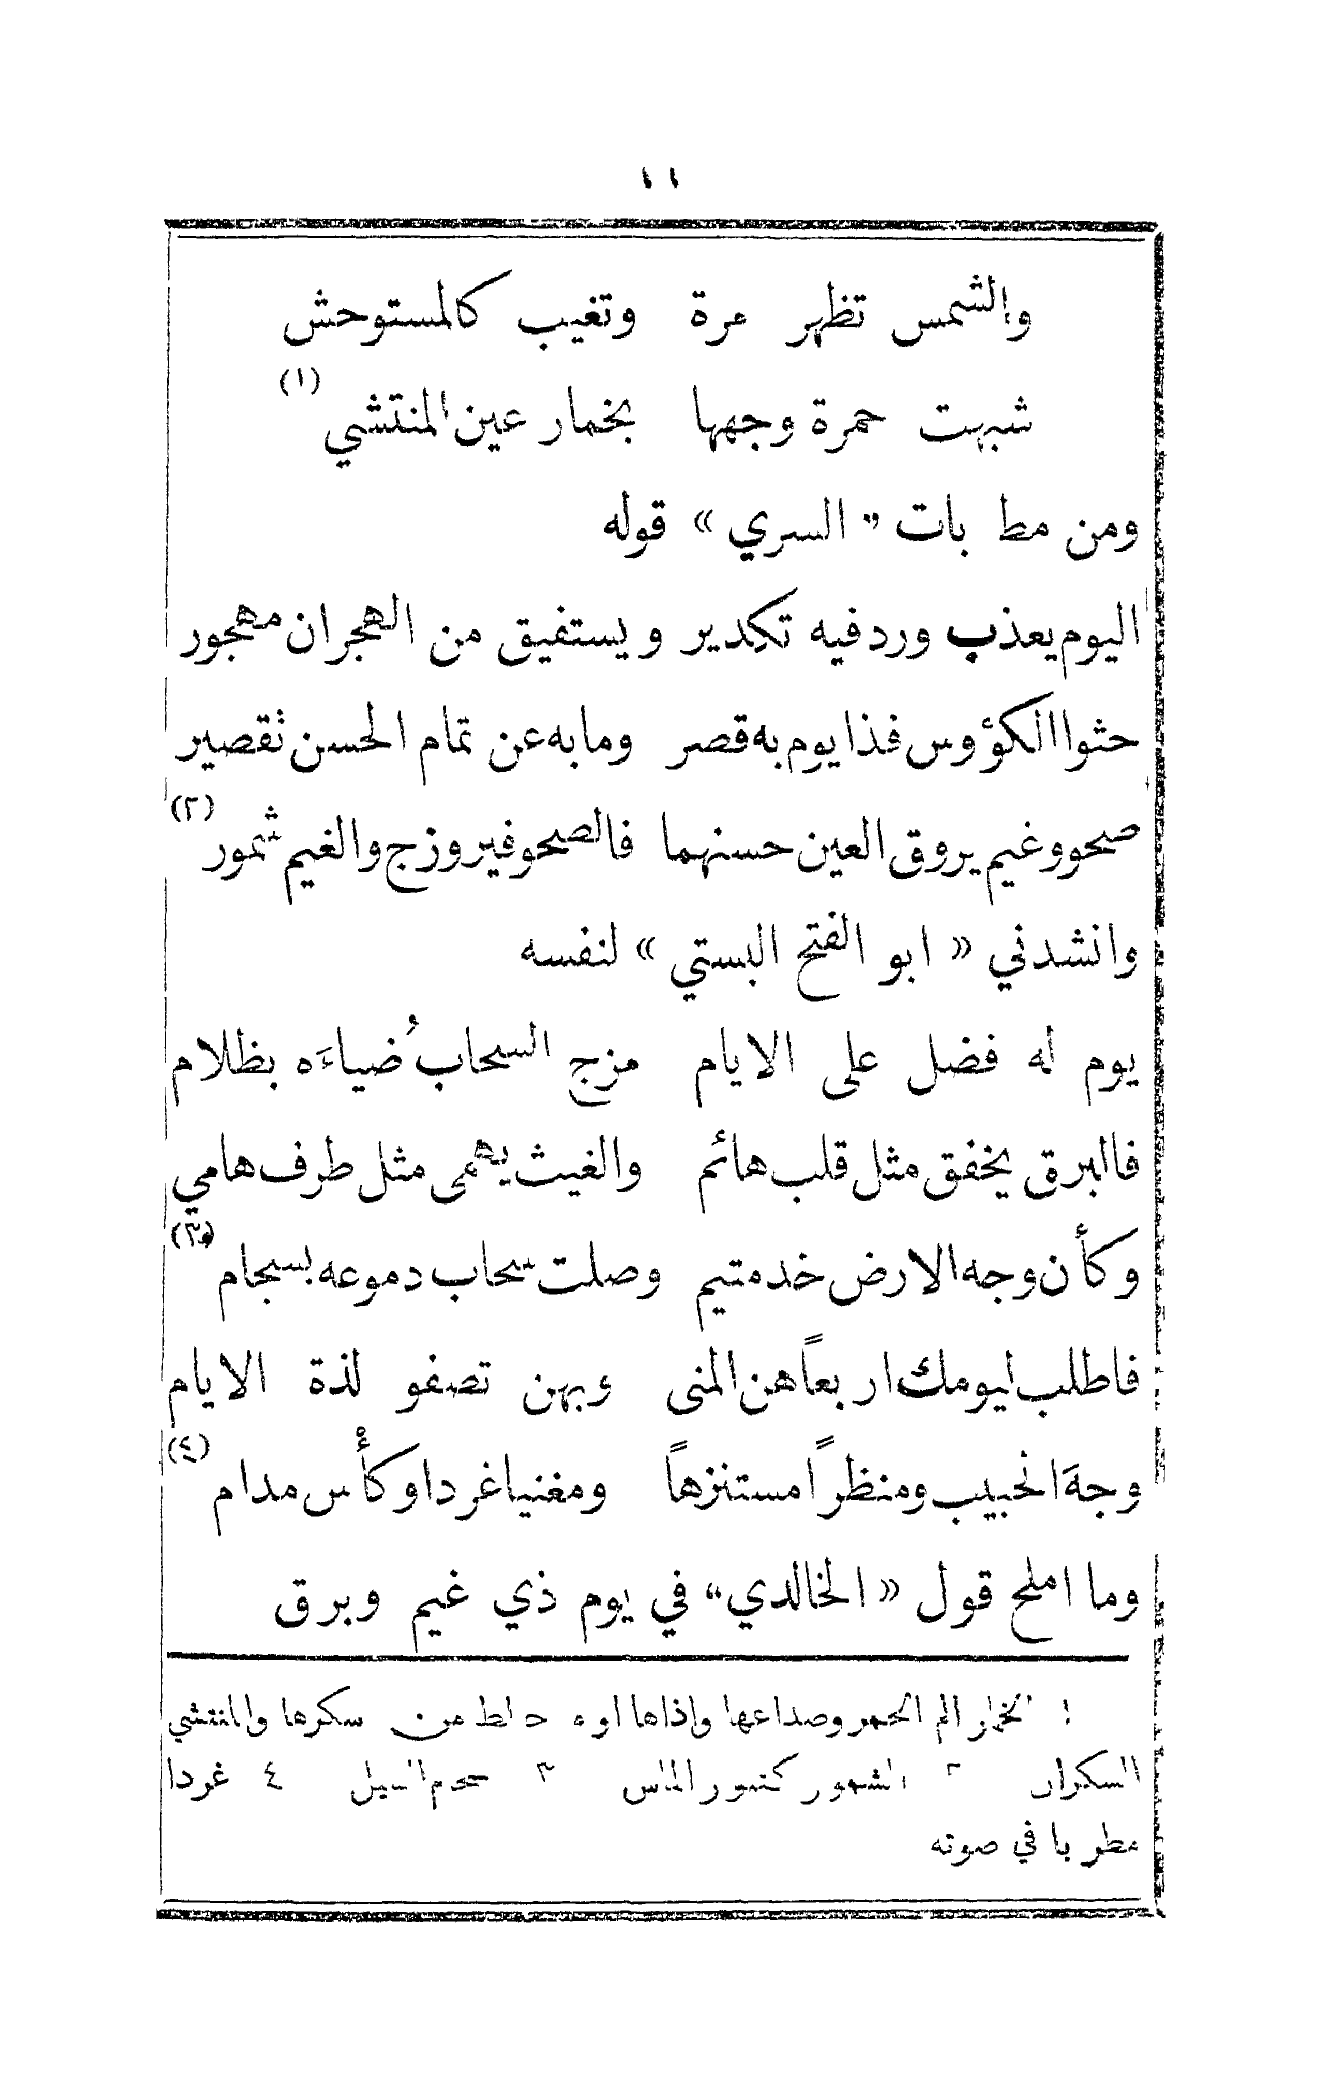 ١١
والشمس تظهر مرة وتغيب كالمستوحش
شبهت حمرة وجهها بخمار عين المنتشي (١)
ومن مط بات " السري » قوله
اليوم يعذب ورد فيه تكدير ويستفيق من الهجران مهجور
حثوا الكؤوس فذا يوم به قصر وما به عن تمام الحسن تقصير
صحو وغيم يروق العين حسنهما فالصحو فيروزج والغيم شمور (٢)
وانشدني « ابو الفتح البستي » لنفسه
يوم له فضل على الايام مزج السحابُ ضياءَه بظلام
فالبرق يخفق مثل قلب هائم والغيث يهمى مثل طرف هامي
وكأن وجه الارض خد متيم وصلت سحاب دموعه بسجام (٣)
فاطلب ليومك اربعاً هن المنى وبهن تصفو لذة الايام
وجهَ الحبيب ومنظراً مستنزهاً ومغنيا غردا وكأْس مدام (٤)
وما املح قول « الخالدي" في يوم ذي غيم وبرق
١ الخمار الم الخمر وصداعها واذاها او خالط من سكرها والمنتشي
السكران ٢ الشمور كتنور الماس ٣ سجم السيل ٤ غردا
مطربا في صوته